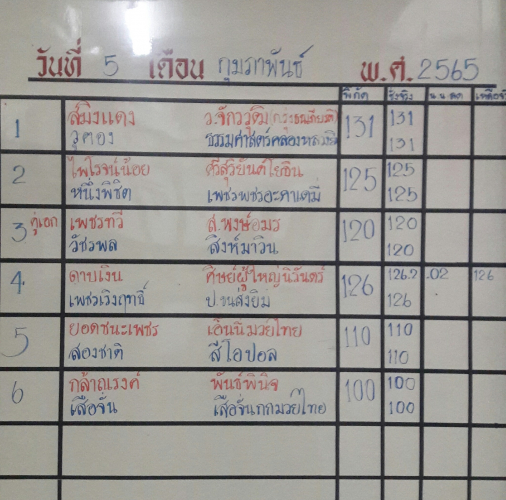 วันที่ 5 เดือน กุมภาพันธ์ พ.ศ. 2565
พิกัด ชั่งจริง น.น.ลด เหลือจริง
1 สมิงแดง ว.จักรวุฒิ 131 131
วุคอง ธรรมศาสตร์คลองหลวง 131
2 ไพโรจน์น้อย ศรีสุริยันต์โยธิน 125 125
หนึ่งพิชิต เพชรพชรอะคาเดมี่ 125
3 คู่เอก เพชรทวี ส.พงษ์อมร 120 120
วัชรพล สิงห์มาวิน 120
4 ดาบเงิน ศิษย์ผู้ใหญ่นิวันตร์ 126 126.2 .02 126
เพชรเริงฤทธิ์ ป.ชนส่งยิม 126
5 ยอดชนะเพชร เอ็นนี่มวยไทย 110 110
สองชาติ สีโอปอล 110
6 กล้าณรงค์ พันธ์พินิจ 100 100
เสือจั่น เสือจั่นกกมวยไทย 100